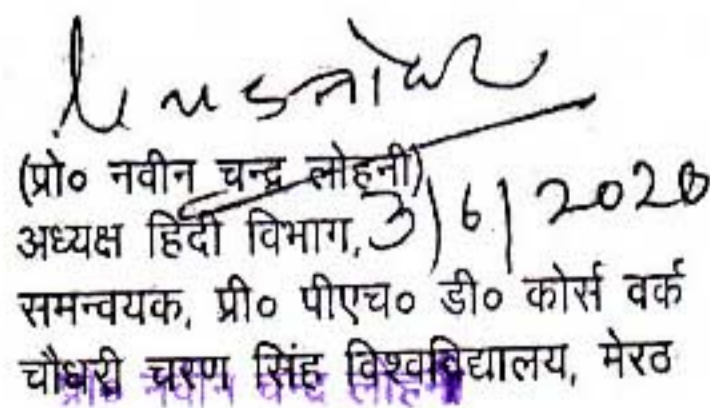 (प्रो० नवीन चन्द्र लोहनी)
अध्यक्ष हिंदी विभाग, 3|6|2020
समन्वयक, प्री० पीएच० डी० कोर्स वर्क
चौधरी चरण सिंह विश्वविद्यालय, मेरठ
प्रो० नवीन चन्द्र लोहनी